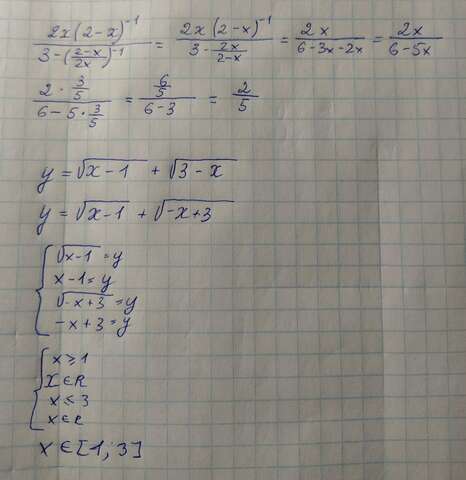 2x(2-x)⁻¹ / (3-((2-x)/(2x))⁻¹) = 2x(2-x)⁻¹ / (3-(2x)/(2-x)) = 2x / (6-3x-2x) = 2x / (6-5x)
(2·3/5) / (6-5·3/5) = (6/5) / (6-3) = 2/5
y = √(x-1) + √(3-x)
y = √(x-1) + √(-x+3)
√(x-1) = y
x-1 = y
√(-x+3) = y
-x+3 = y
x ≥ 1
x ∈ R
x ≤ 3
x ∈ R
x ∈ [1; 3]